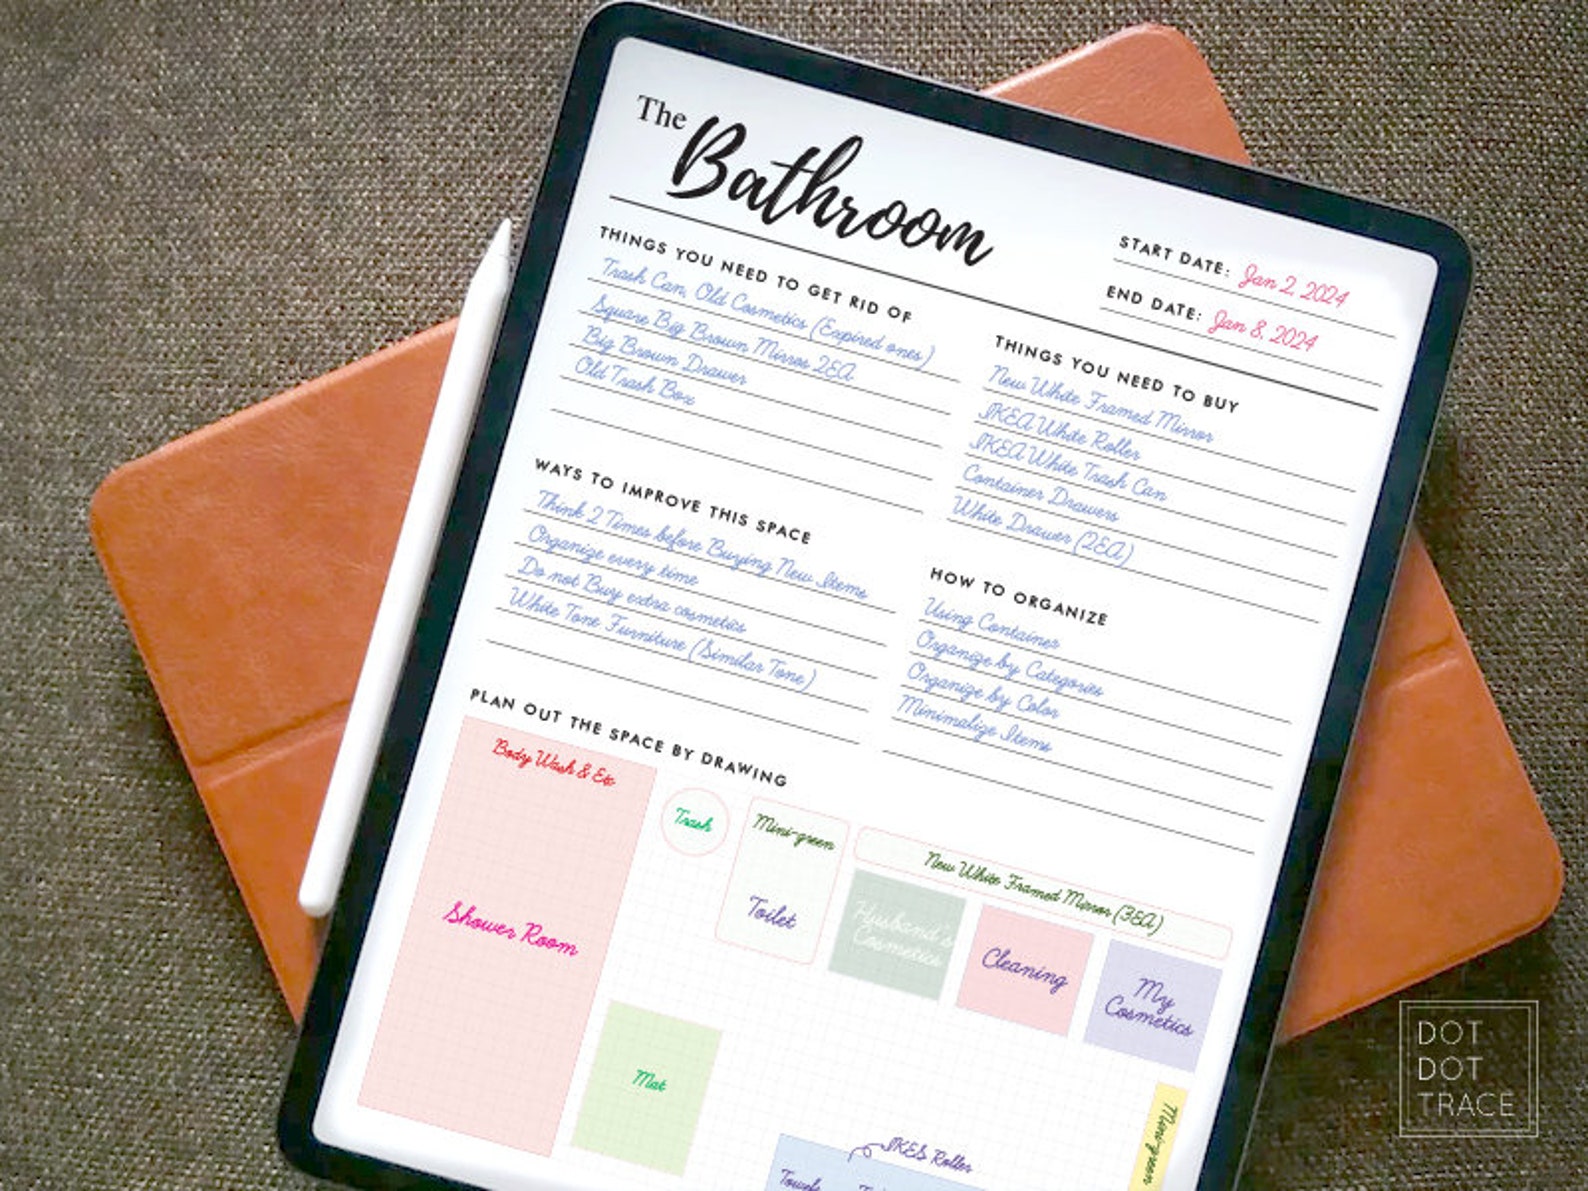 The
Bathroom
START DATE: Jan 2, 2024
END DATE: Jan 8, 2024
THINGS YOU NEED TO GET RID OF
Trash Can, Old Cosmetics (Expired ones)
Square Big Brown Mirror 2EA
Big Brown Drawer
Old Trash Box
THINGS YOU NEED TO BUY
New White Framed Mirror
IKEA White Roller
IKEA White Trash Can
Container Drawers
White Drawer (2EA)
WAYS TO IMPROVE THIS SPACE
Think 2 Times before Buying New Items
Organize every time
Do not Buy extra cosmetics
White Tone Furniture (Similar Tone)
HOW TO ORGANIZE
Using Container
Organize by Categories
Organize by Color
Minimalize Items
PLAN OUT THE SPACE BY DRAWING
Body Wash & Etc
Shower Room
Trash
Mini-green
Toilet
New White Framed Mirror (3EA)
Husband's
Cosmetics
Cleaning
My
Cosmetics
Mat
IKES Roller
Mini-green
DOT
DOT
TRACE